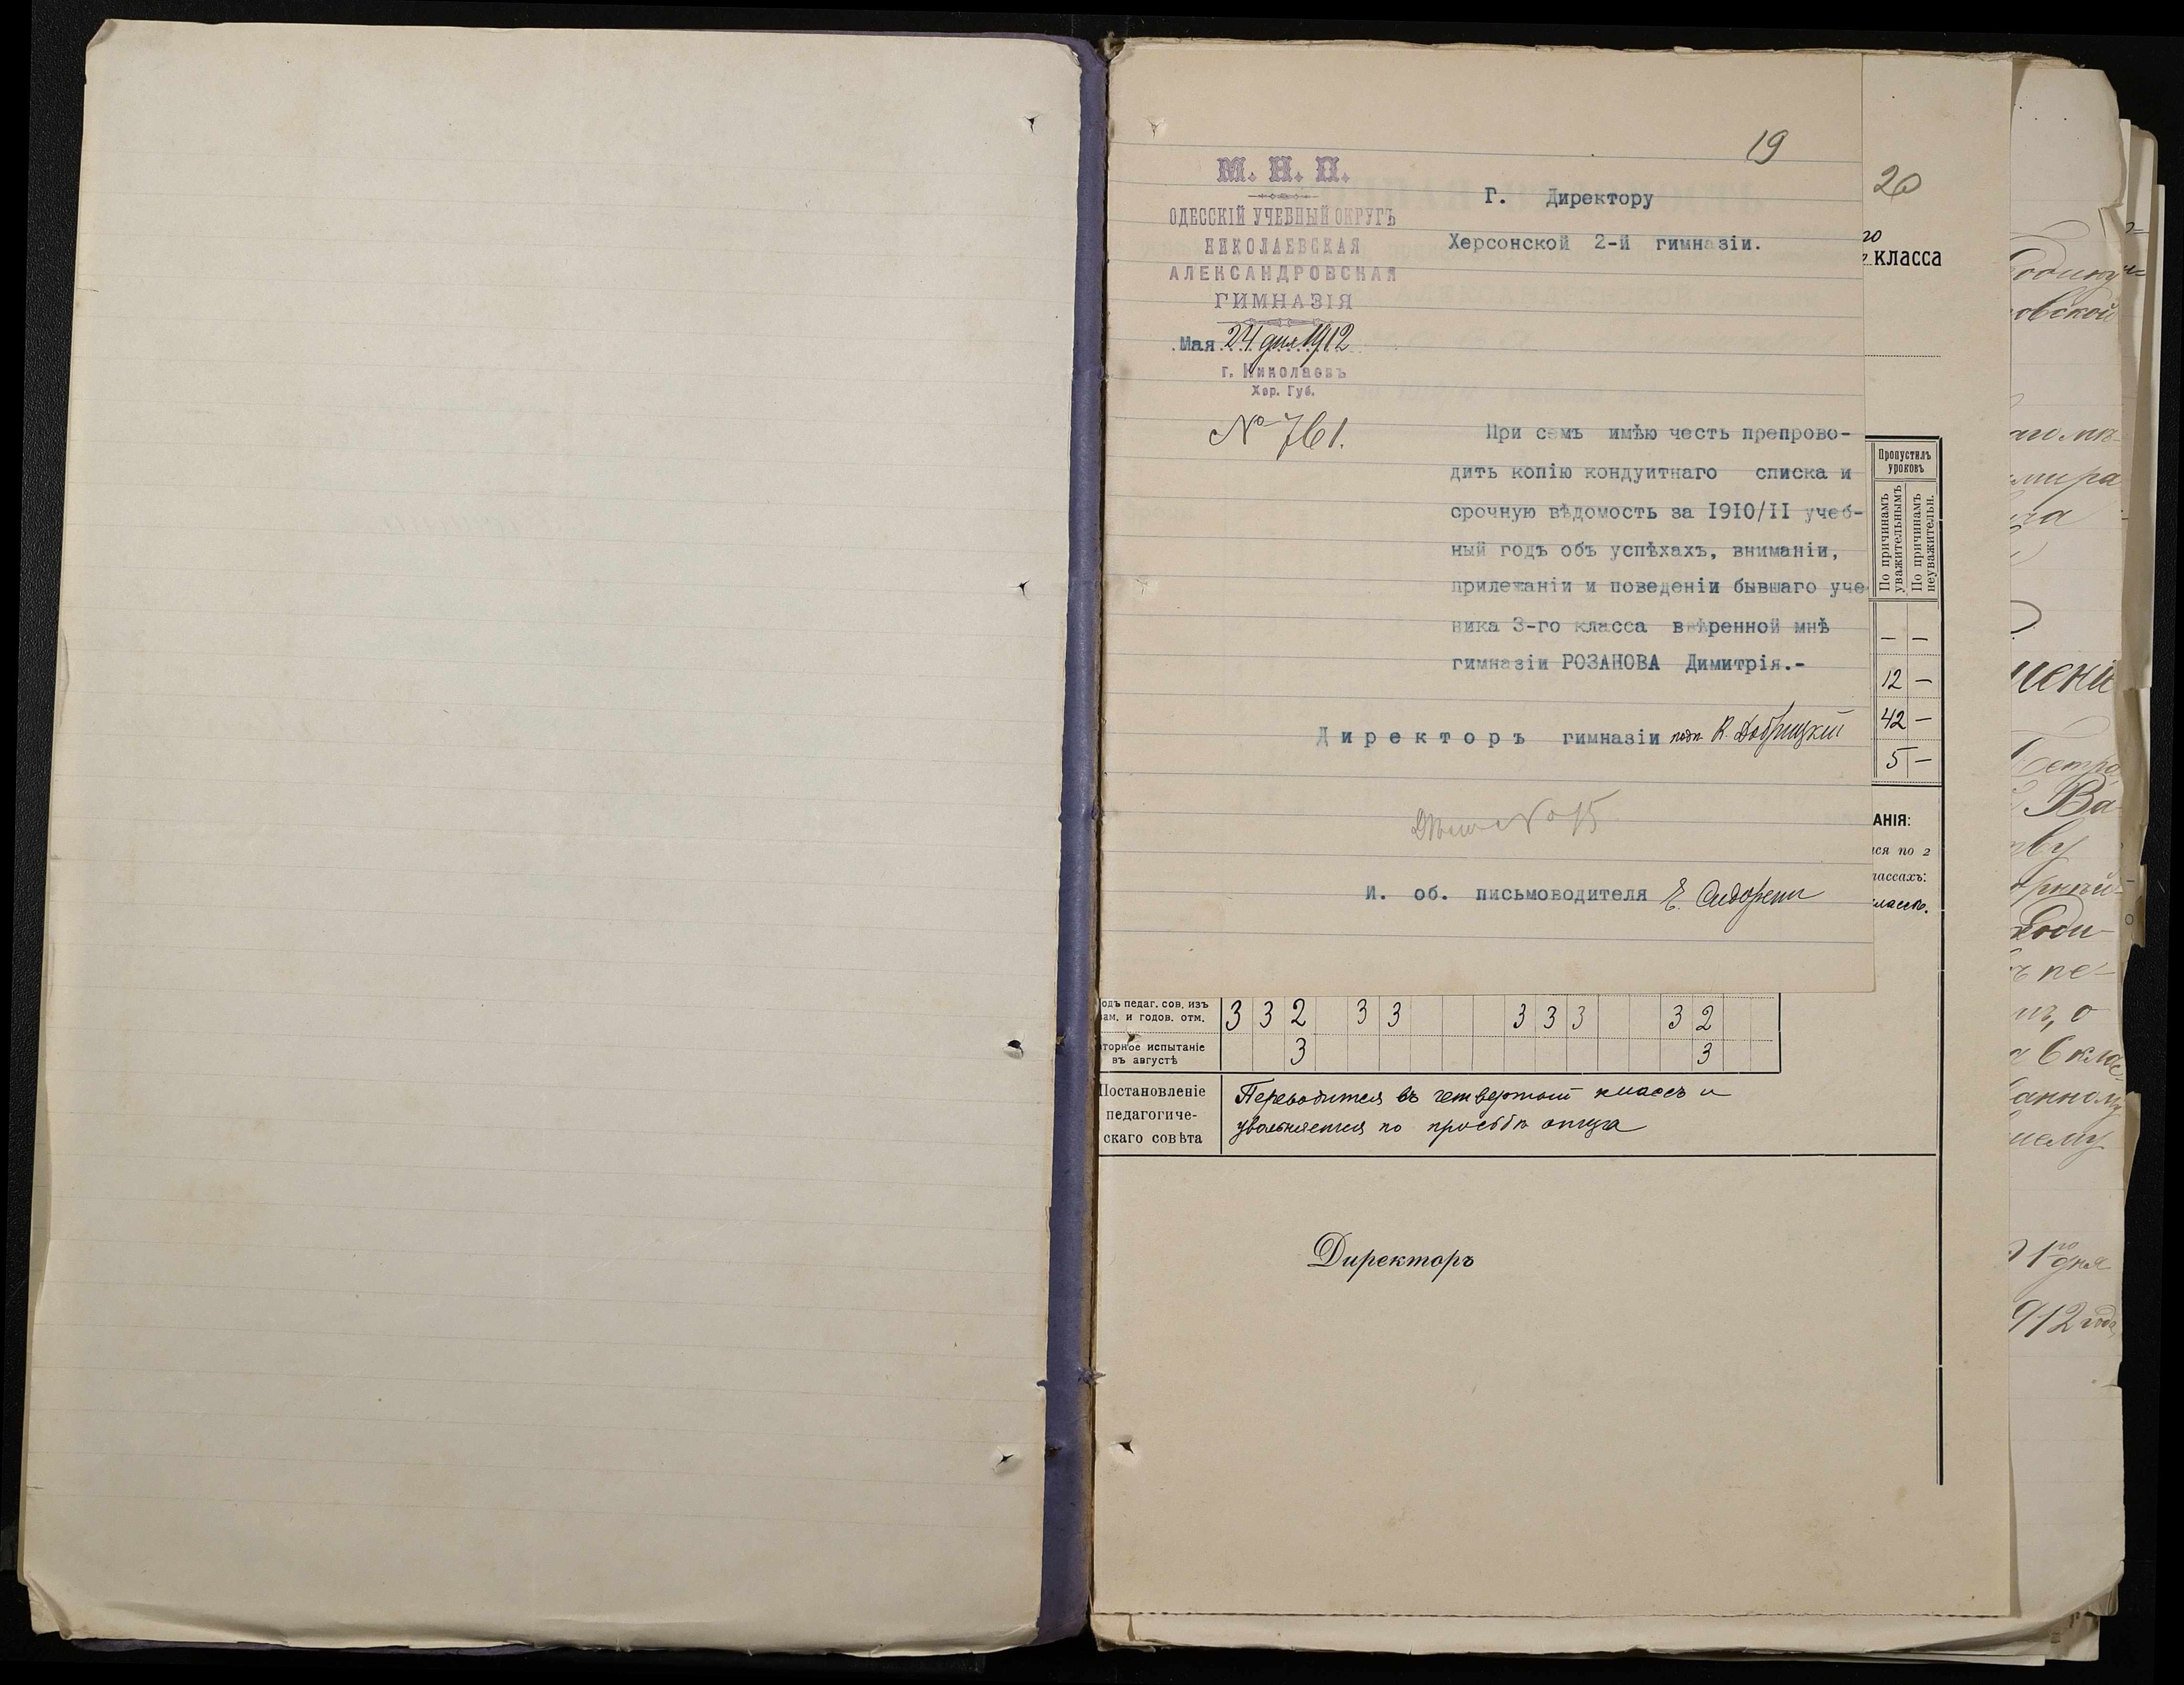 19
М. Н. П.
ОДЕССКІЙ УЧЕБНЫЙ ОКРУГЪ
НИКОЛАЕВСКАЯ
АЛЕКСАНДРОВСКАЯ
ГИМНАЗІЯ
Мая 24 дня 1912
г. Николаевъ
Хер. Губ.
№ 761.
Г. Директору
Херсонской 2-й гимназіи.
При семъ имѣю честь препрово-
дить копію кондуитнаго списка и
срочную вѣдомость за I9I0/II учеб-
ный годъ объ успѣхахъ, вниманіи,
прилежаніи и поведеніи бывшаго уче
ника 3-го класса ввѣренной мнѣ
гимназіи РОЗАНОВА Димитрія.-
Директоръ гимназіи подп. К. Добрицкій
Дѣло № 15
И. об. письмоводителя Е.
20
го
класса
Пропустилъ
уроковъ
По причинамъ
уважительнымъ
По причинамъ
неуважительн.
— —
12 —
42 —
5 —
АНІЯ:
ся по 2
лассахъ:
классѣ.
одъ педаг. сов. изъ
ам. и годов. отм. 3 3 2 3 3 3 3 3 3 2
торное испытаніе
въ августѣ 3 3
Постановленіе
педагогиче-
скаго совѣта
Переводится въ четвертый классъ и
увольняется по просьбѣ отца
Директоръ
овской
мира
Петро
Ва-
пе-
о
6 клас-
анному
1го дня
912 года